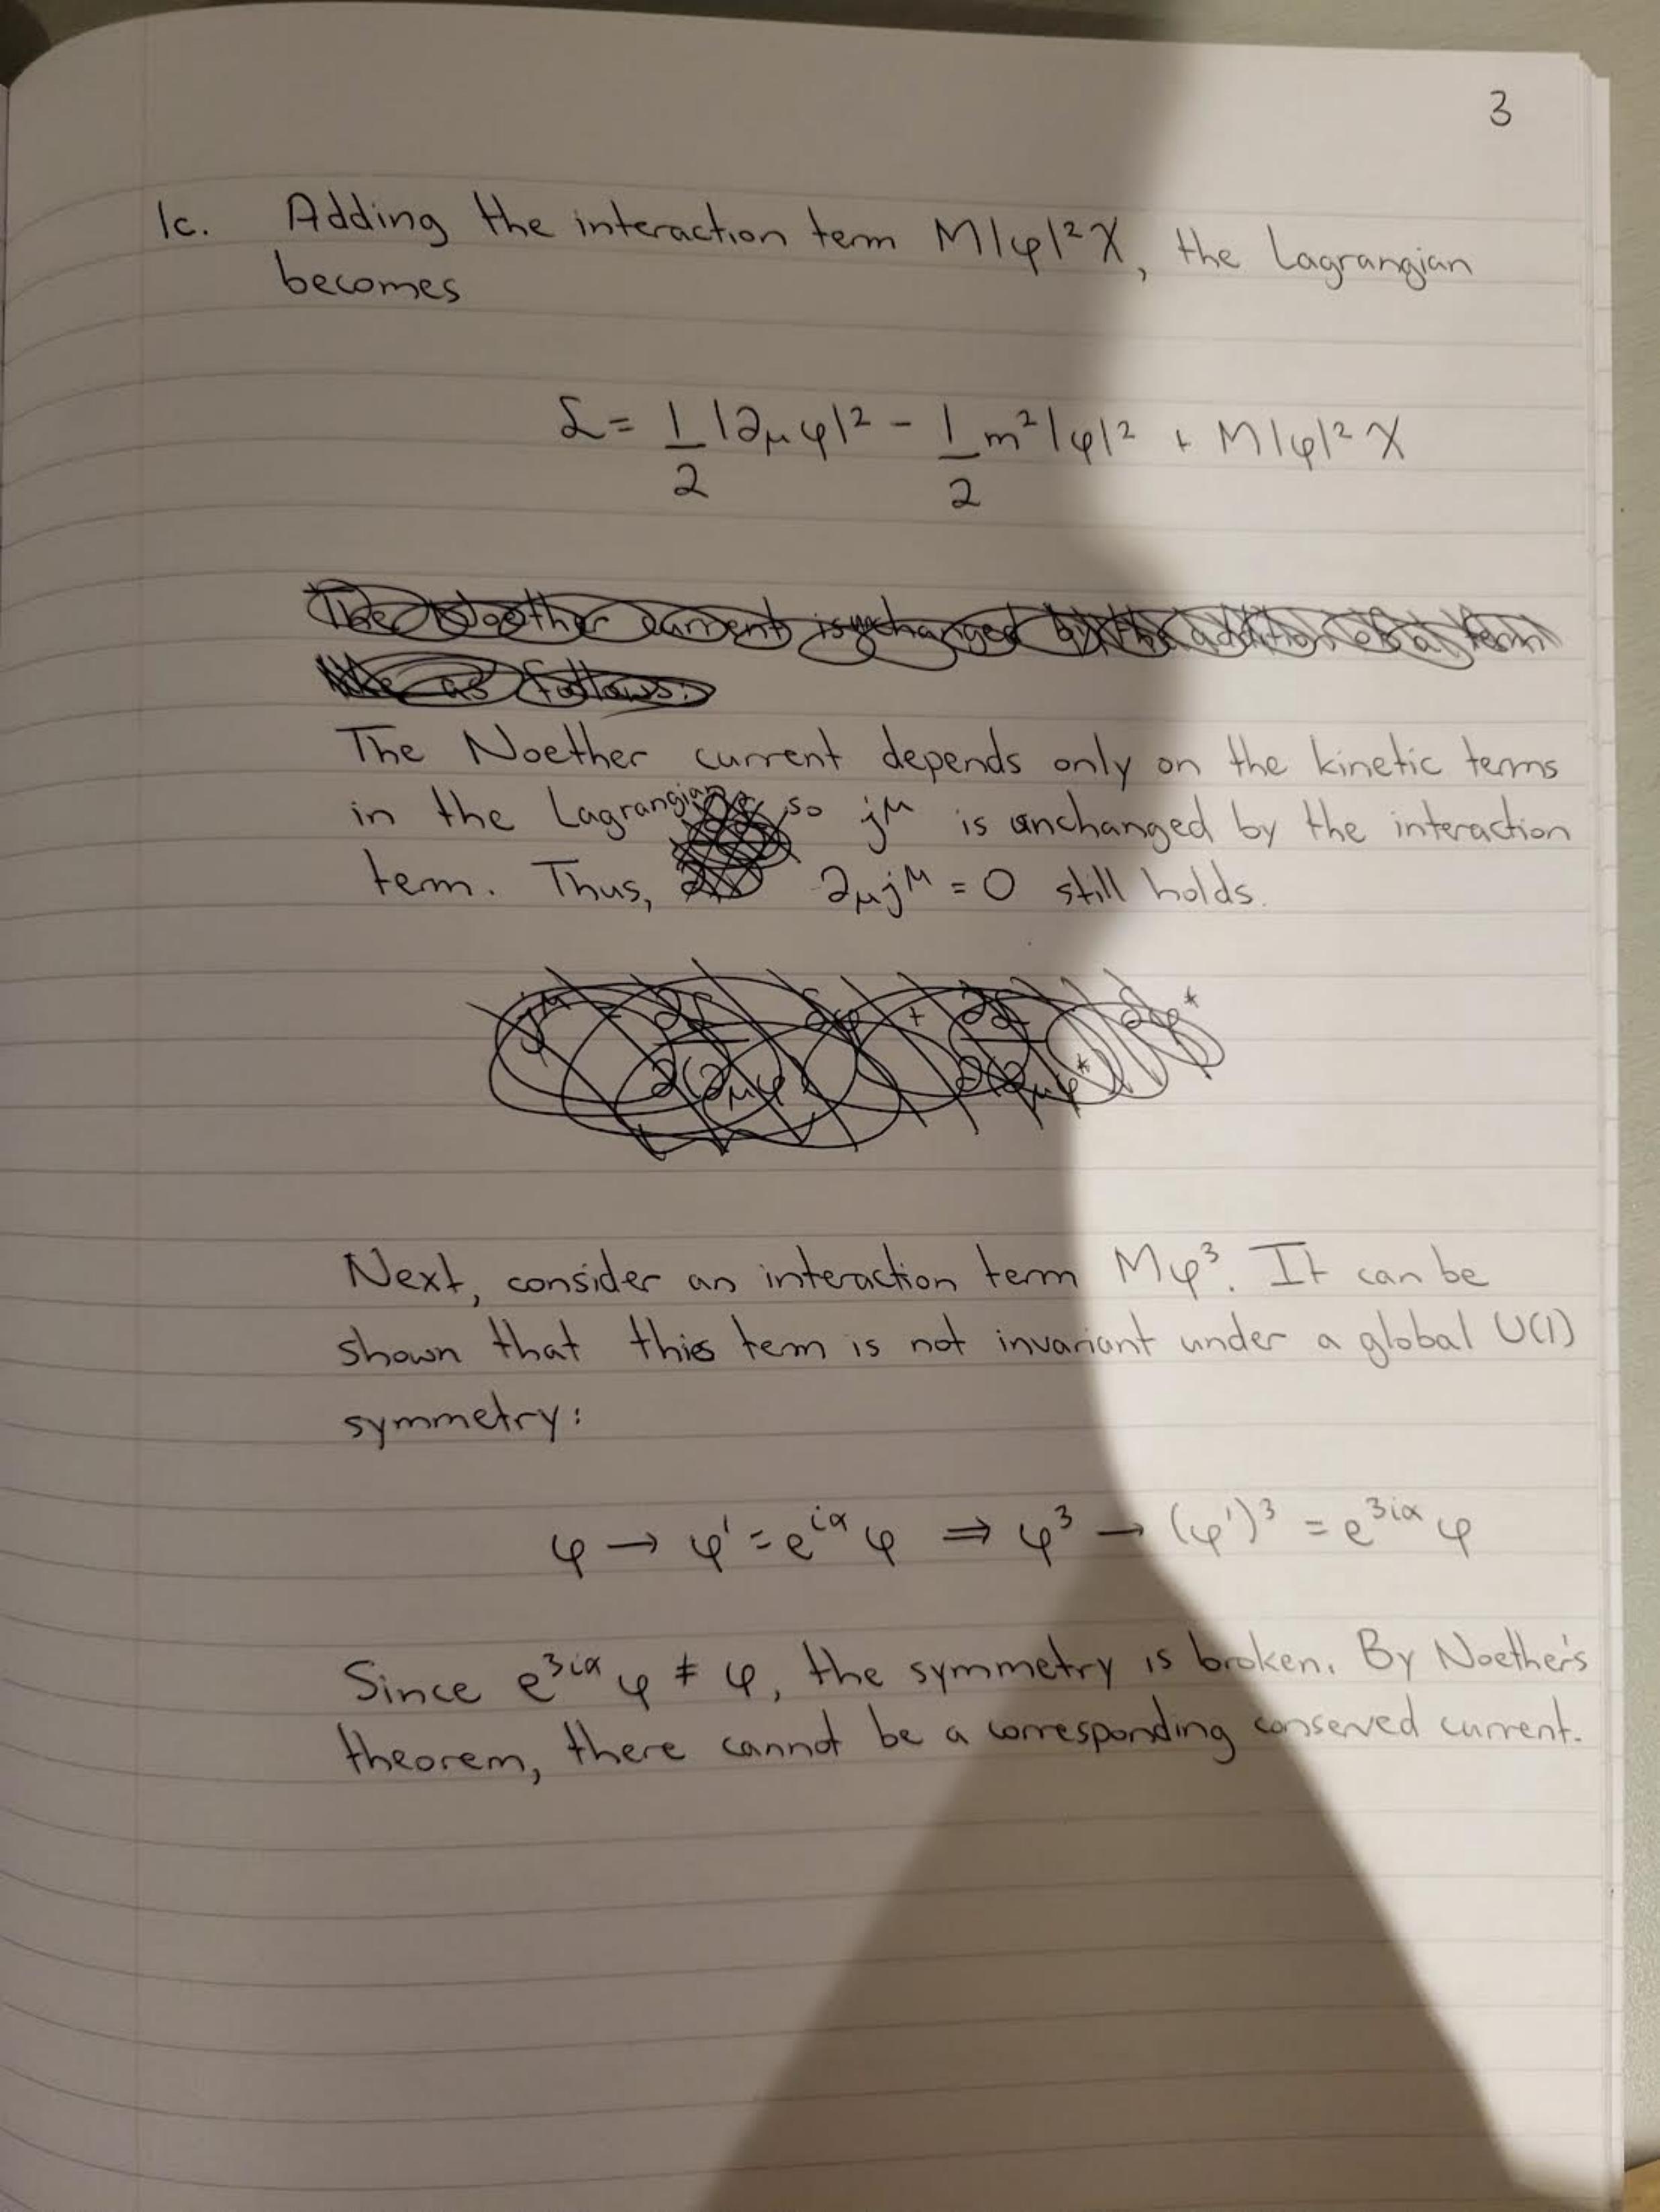 3
1c. Adding the interaction term M|φ|²χ, the Lagrangian
becomes
ℒ = 1/2 |∂μφ|² - 1/2 m²|φ|² + M|φ|²χ
The Noether current is unchanged by the addition of a term
as follows:
The Noether current depends only on the kinetic terms
in the Lagrangian, so j^μ is unchanged by the interaction
term. Thus, ∂μj^μ = 0 still holds.
j^μ = ∂ℒ/∂(∂μφ) δφ + ∂ℒ/∂(∂μφ*) δφ*
Next, consider an interaction term Mφ³. It can be
shown that this term is not invariant under a global U(1)
symmetry:
φ → φ' = e^{iα} φ ⇒ φ³ → (φ')³ = e^{3iα} φ
Since e^{3iα} φ ≠ φ, the symmetry is broken. By Noether's
theorem, there cannot be a corresponding conserved current.